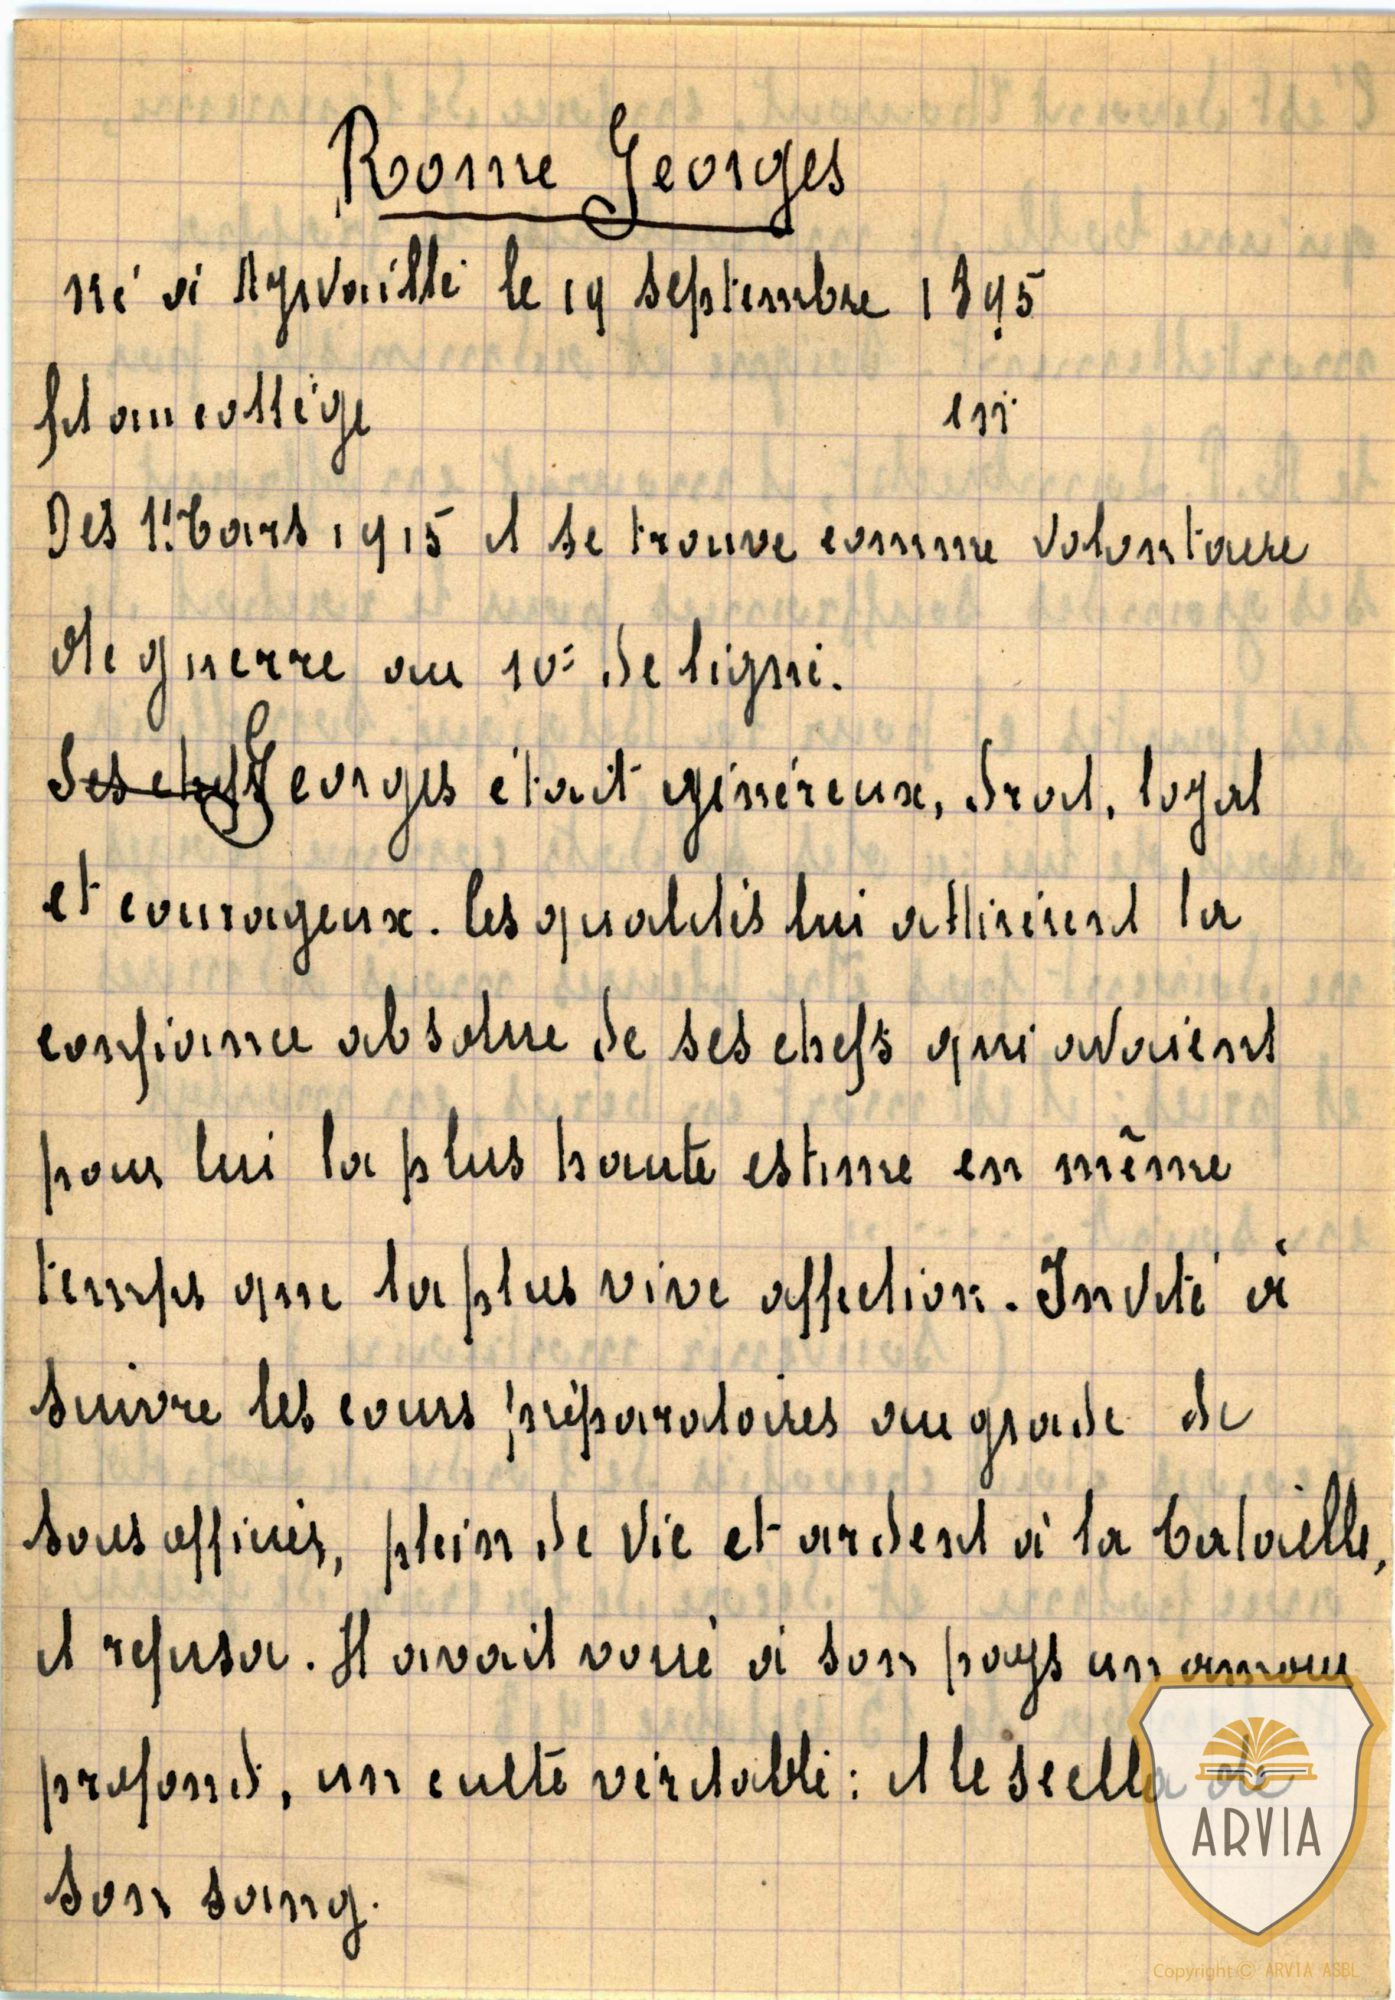 Rome Georges
né à Aywaille le 19 septembre 1895
fit au collège en
Dès 1r Mars 1915 il se trouve comme volontaire
de guerre au 10e de ligne.
Ses chefs Georges était généreux, droit, loyal
et courageux. Ces qualités lui attirèrent la
confiance absolue de ses chefs qui avaient
pour lui la plus haute estime en même
temps que la plus vive affection. Invité à
suivre les cours préparatoires au grade de
sous officier, plein de vie et ardent à la bataille,
il refusa. Il avait voué à son pays un amour
profond, un culte véritable : il le scella de
son sang.
ARVIA
Copyright © ARVIA ASBL